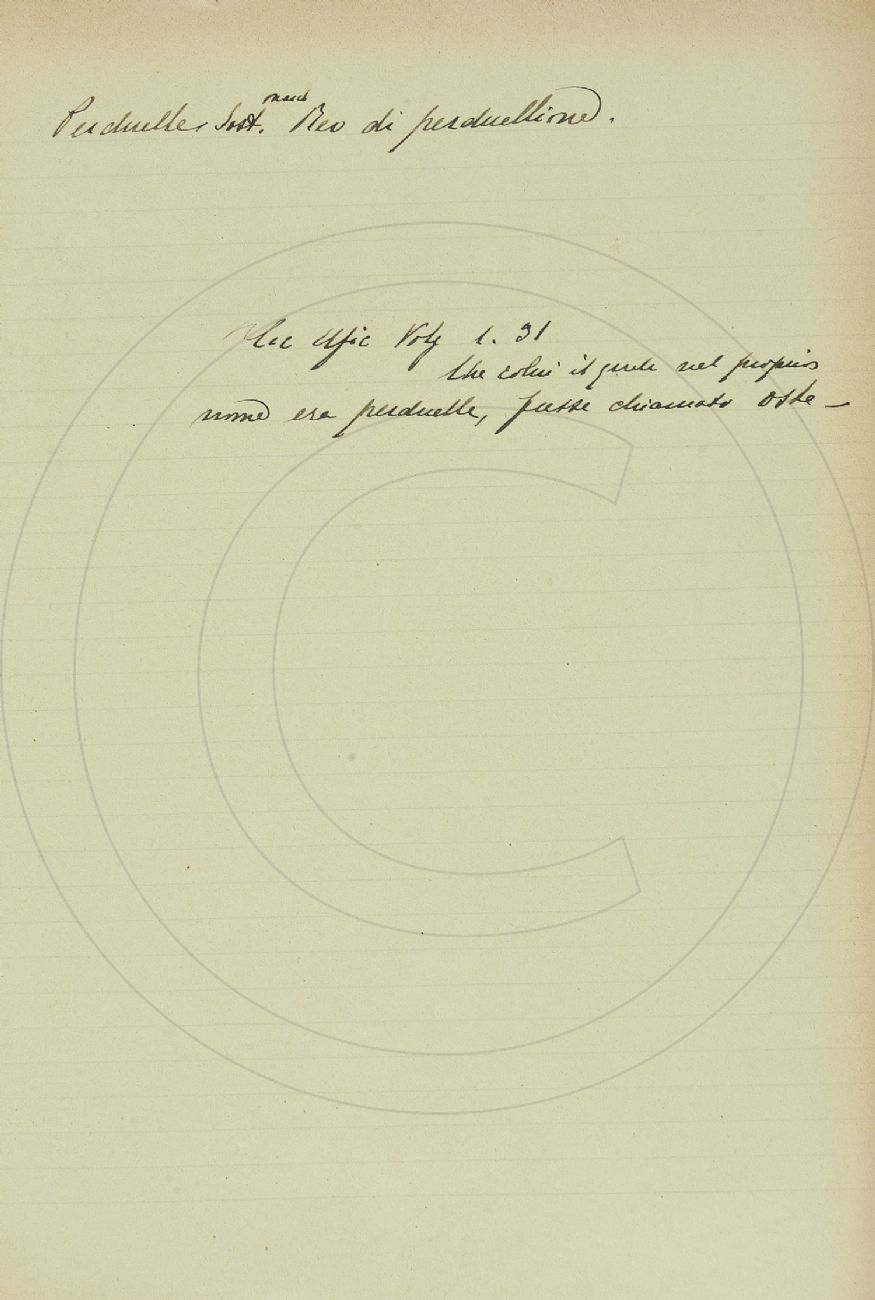 Perduelle Sost. masc. Reo di perduellione.
Cic Ufic Volg 1. 31
Che colui il quale nel proprio
nome era perduelle, fusse chiamato oste —